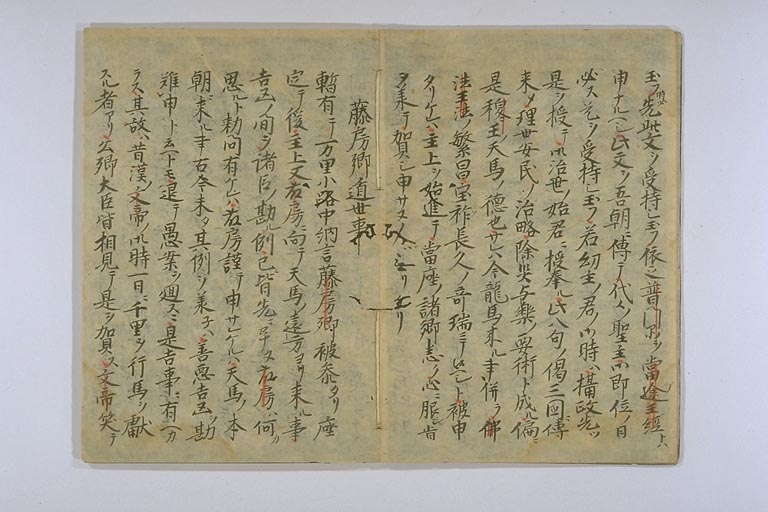 玉フ先此文ヲ受持シ玉フ依之普門品ヲ當途王經ト
申ナルヘシ此文ヲ吾朝ニ傳テ代々ノ聖主御即位ノ日
必ス先ツ受持シ玉フ若幼主ノ君ノ御時ハ攝政先ツ
是ヲ授テ御治世ノ始君ニ授奉ル此八句ノ偈三国ニ傳
来シ理世安民ノ治略除災与樂ノ要術ト成ル偏ニ
是穆王天馬ノ德也サレハ今龍馬来ル事併ラ佛
法王法ノ繁昌宝祚長久ノ奇瑞ニテ候ント被申
タリケレハ主上ヲ始進テ當座ノ諸卿悉ク心ニ服シ旨
ヲ承テ賀シ申サヌ人ハ無リケリ
藤房卿遁世事
暫有テ万里小路中納言藤房卿被参タリ座
定テ後主上又藤房ニ向テ天馬ノ遠方ヨリ来ル事
吉凶ノ間ヲ諸臣ノ勘例已皆先ニ早ヌ藤房ハ何カ
思ルト勅問有ケレハ藤房謹テ申サレケルハ天馬ノ本
朝ニ来ル事古今未タ其例ヲ承子ハ善悪吉凶ヲ勘
難申ト云ヘトモ退テ愚案ヲ廻スニ是吉事ニ有ヘカ
ラス其故ハ昔漢ノ文帝ノ御時一日ニ千里ヲ行馬ヲ獻
スル者アリ公卿大臣皆相見テ是ヲ賀ス文帝笑テ